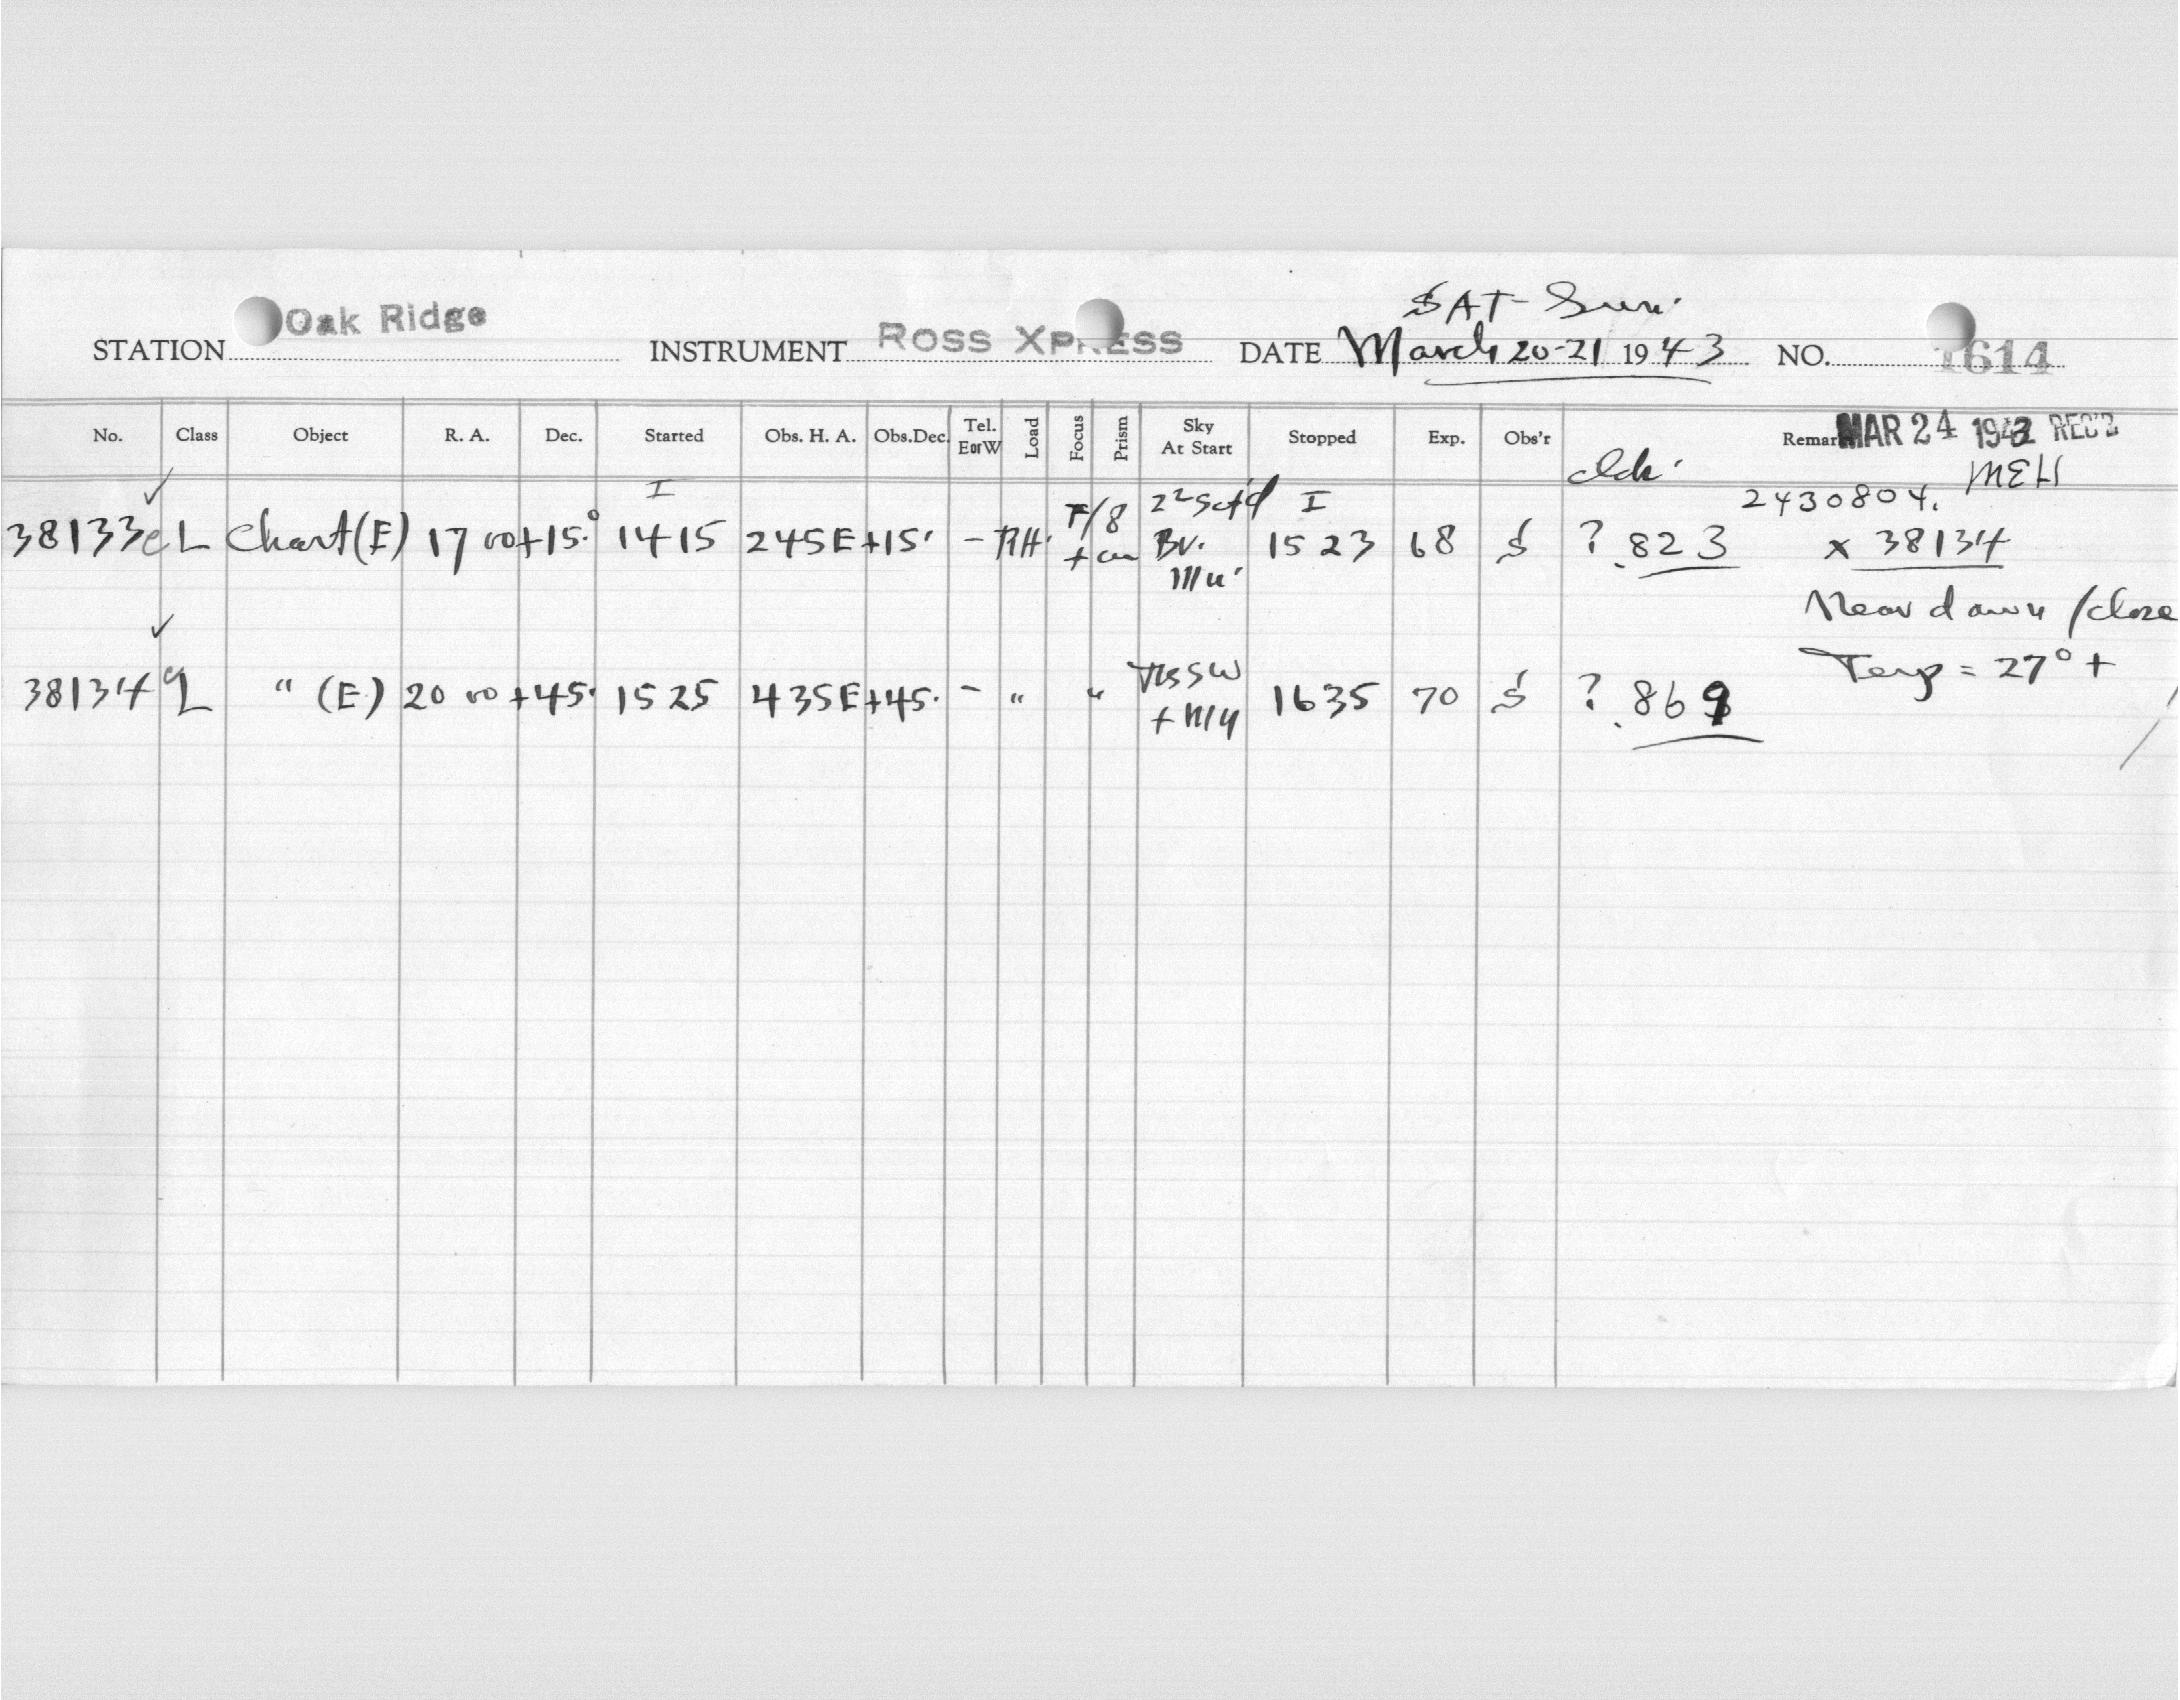 SAT-Sun.
STATION Oak Ridge INSTRUMENT ROSS XPRESS DATE March 20-21 1943 NO. 1614
No. Class Object R. A. Dec. Started Obs. H. A. Obs.Dec. Tel. E or W Load Focus Prism Sky At Start Stopped Exp. Obs'r Remar MAR 24 1943 REC'D
MEH
I I 2430804.
38133 L Chart(E) 17 00 +15° 1415 245E +15. - RH. F/8 1523 68 S ? .823 x 38134
Near dawn / close
Temp = 27° +
38134 L " (E) 20 00 +45. 1525 435E +45. - " " 1635 70 S ? .869